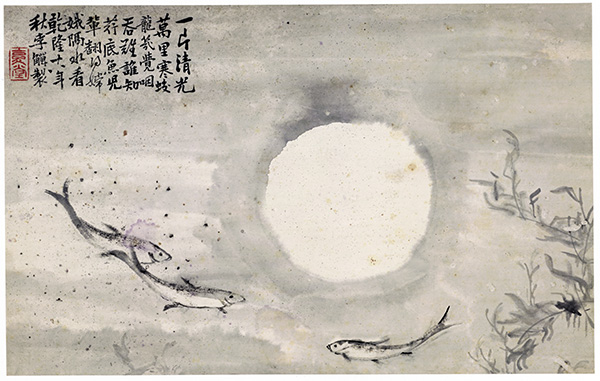 一片清光
萬里寒蛟
龍亦覺咽
吞難誰知
荇底魚兒
輩翻得嫦
娥隔水看
乾隆十八年
秋李鱓製